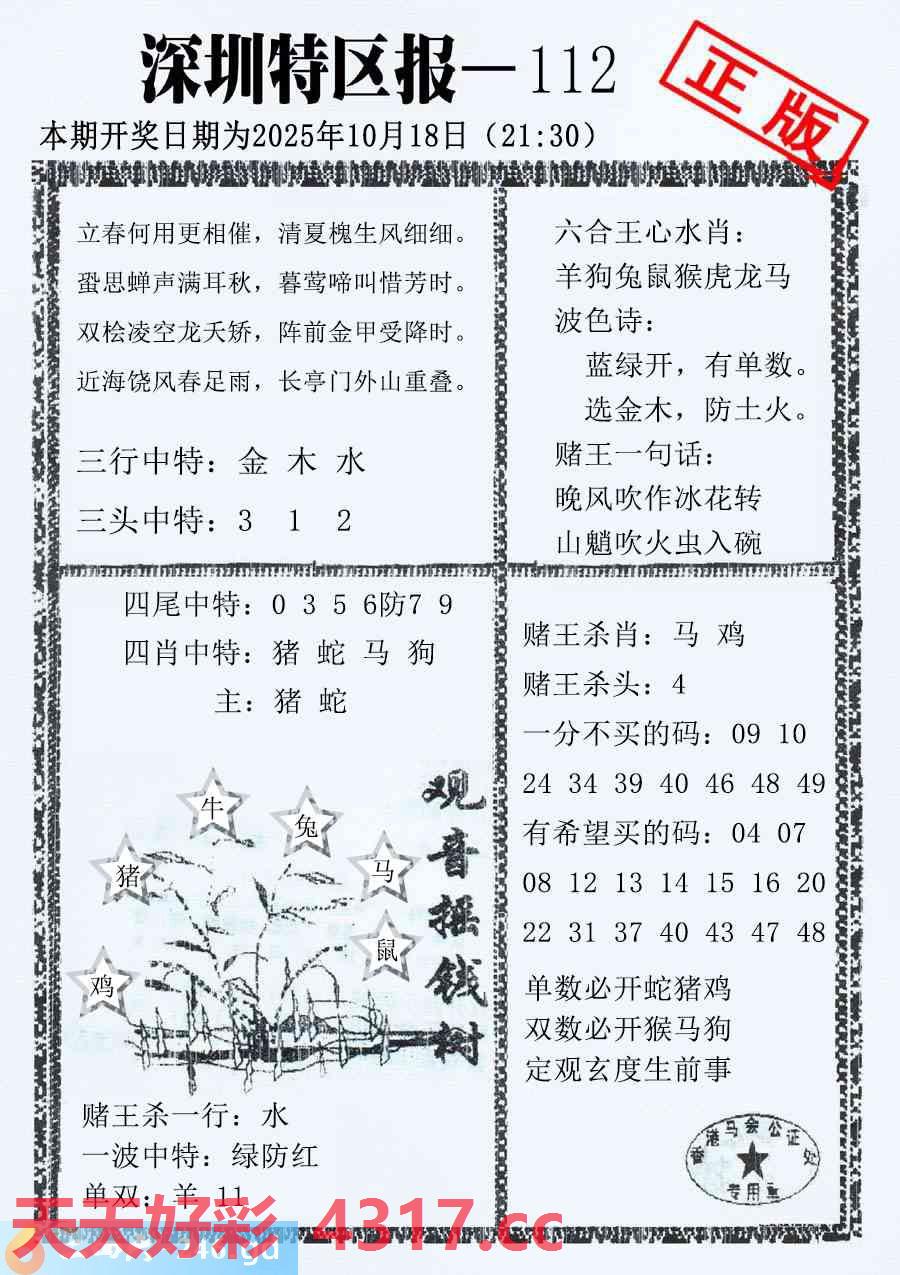 深圳特区报—112
正版
本期开奖日期为2025年10月18日（21:30）
立春何用更相催，清夏槐生风细细。
蛩思蝉声满耳秋，暮莺啼叫惜芳时。
双桧凌空龙夭矫，阵前金甲受降时。
近海饶风春足雨，长亭门外山重叠。
三行中特：金 木 水
三头中特：3 1 2
六合王心水肖：
羊狗兔鼠猴虎龙马
波色诗：
蓝绿开，有单数。
选金木，防土火。
赌王一句话：
晚风吹作冰花转
山魈吹火虫入碗
四尾中特：0 3 5 6防7 9
四肖中特：猪 蛇 马 狗
主：猪 蛇
牛
兔
猪
马
鼠
鸡
观音摇钱树
赌王杀一行：水
一波中特：绿防红
单双：羊 11
赌王杀肖：马 鸡
赌王杀头：4
一分不买的码：09 10
24 34 39 40 46 48 49
有希望买的码：04 07
08 12 13 14 15 16 20
22 31 37 40 43 47 48
单数必开蛇猪鸡
双数必开猴马狗
定观玄度生前事
香港马会公证处
专用章
天天好彩 4317.cc